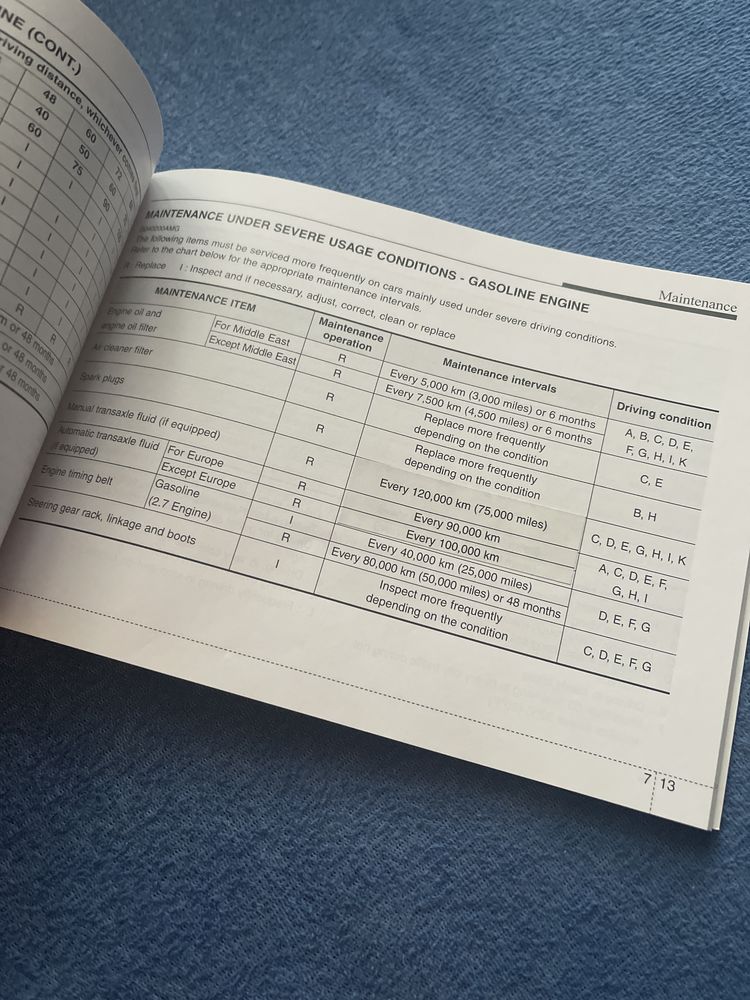 INE (CONT.)
riving distance, whichever com
48 60 72
40 50 60
60 75 90
I I
I
I
I
I
I
I
R R
m or 48 months
or 48 months
r 48 months
Maintenance
MAINTENANCE UNDER SEVERE USAGE CONDITIONS - GASOLINE ENGINE
The following items must be serviced more frequently on cars mainly used under severe driving conditions.
Refer to the chart below for the appropriate maintenance intervals.
R : Replace I : Inspect and if necessary, adjust, correct, clean or replace
MAINTENANCE ITEM Maintenance operation Maintenance intervals Driving condition
Engine oil and engine oil filter For Middle East R Every 5,000 km (3,000 miles) or 6 months A, B, C, D, E,
Except Middle East R Every 7,500 km (4,500 miles) or 6 months F, G, H, I, K
Air cleaner filter R Replace more frequently depending on the condition C, E
Spark plugs R Replace more frequently depending on the condition B, H
Manual transaxle fluid (if equipped) R Every 120,000 km (75,000 miles) C, D, E, G, H, I, K
Automatic transaxle fluid (if equipped) For Europe R Every 90,000 km A, C, D, E, F,
Except Europe R Every 100,000 km G, H, I
Engine timing belt Gasoline (2.7 Engine) I Every 40,000 km (25,000 miles) D, E, F, G
R Every 80,000 km (50,000 miles) or 48 months
Steering gear rack, linkage and boots I Inspect more frequently depending on the condition C, D, E, F, G
7 13